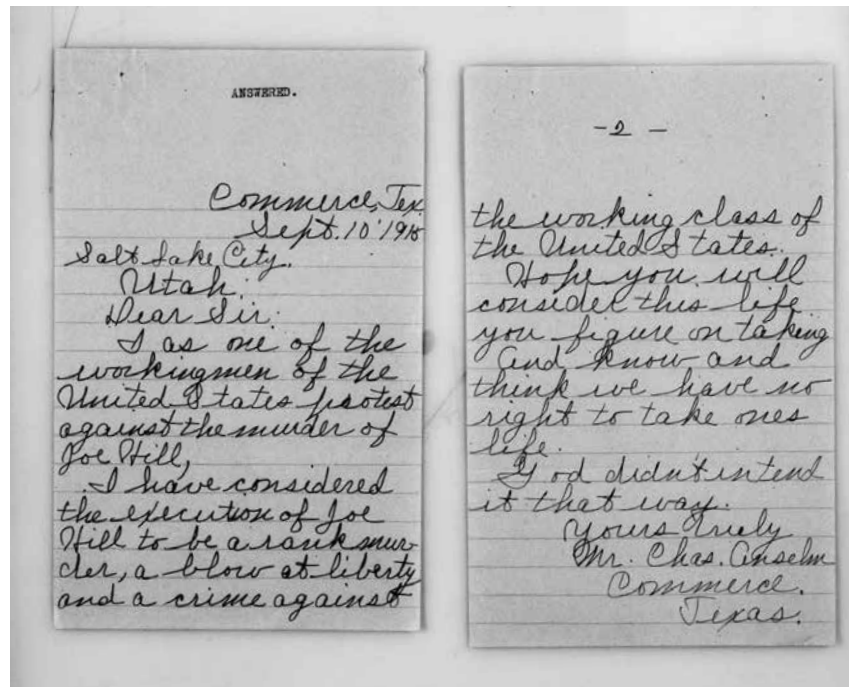 ANSWERED.
Commerce, Tex
Sept. 10' 1915
Salt Lake City.
Utah.
Dear Sir:
I as one of the
workingmen of the
United States protest
against the murder of
Joe Hill,
I have considered
the execution of Joe
Hill to be a rank mur-
der, a blow at liberty
and a crime against
-2-
the working class of
the United States.
Hope you will
consider this life
you figure on taking
And know and
think we have no
right to take ones
life.
God didn't intend
it that way.
Yours Truly
Mr. Chas. Anselm
Commerce.
Texas.